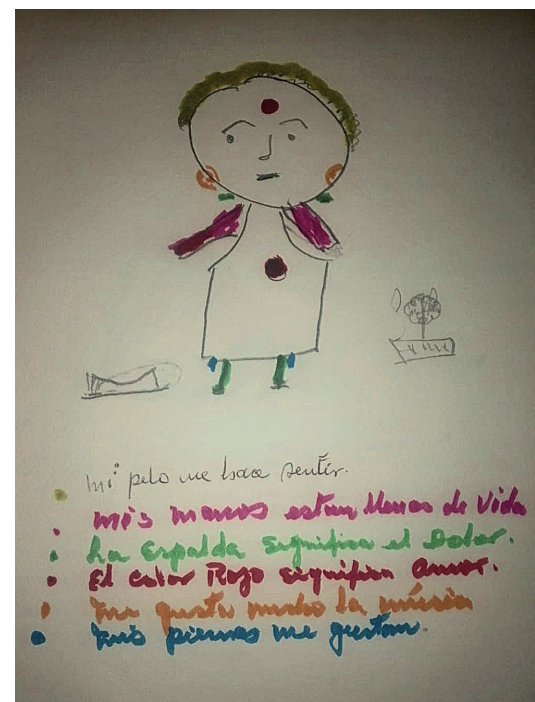 mi pelo me hace sentir.
mis manos estan llenas de vida
La Espalda significa el Dolor.
El color Rojo significa amor.
me gusta mucho la música
mis piernas me gustan.